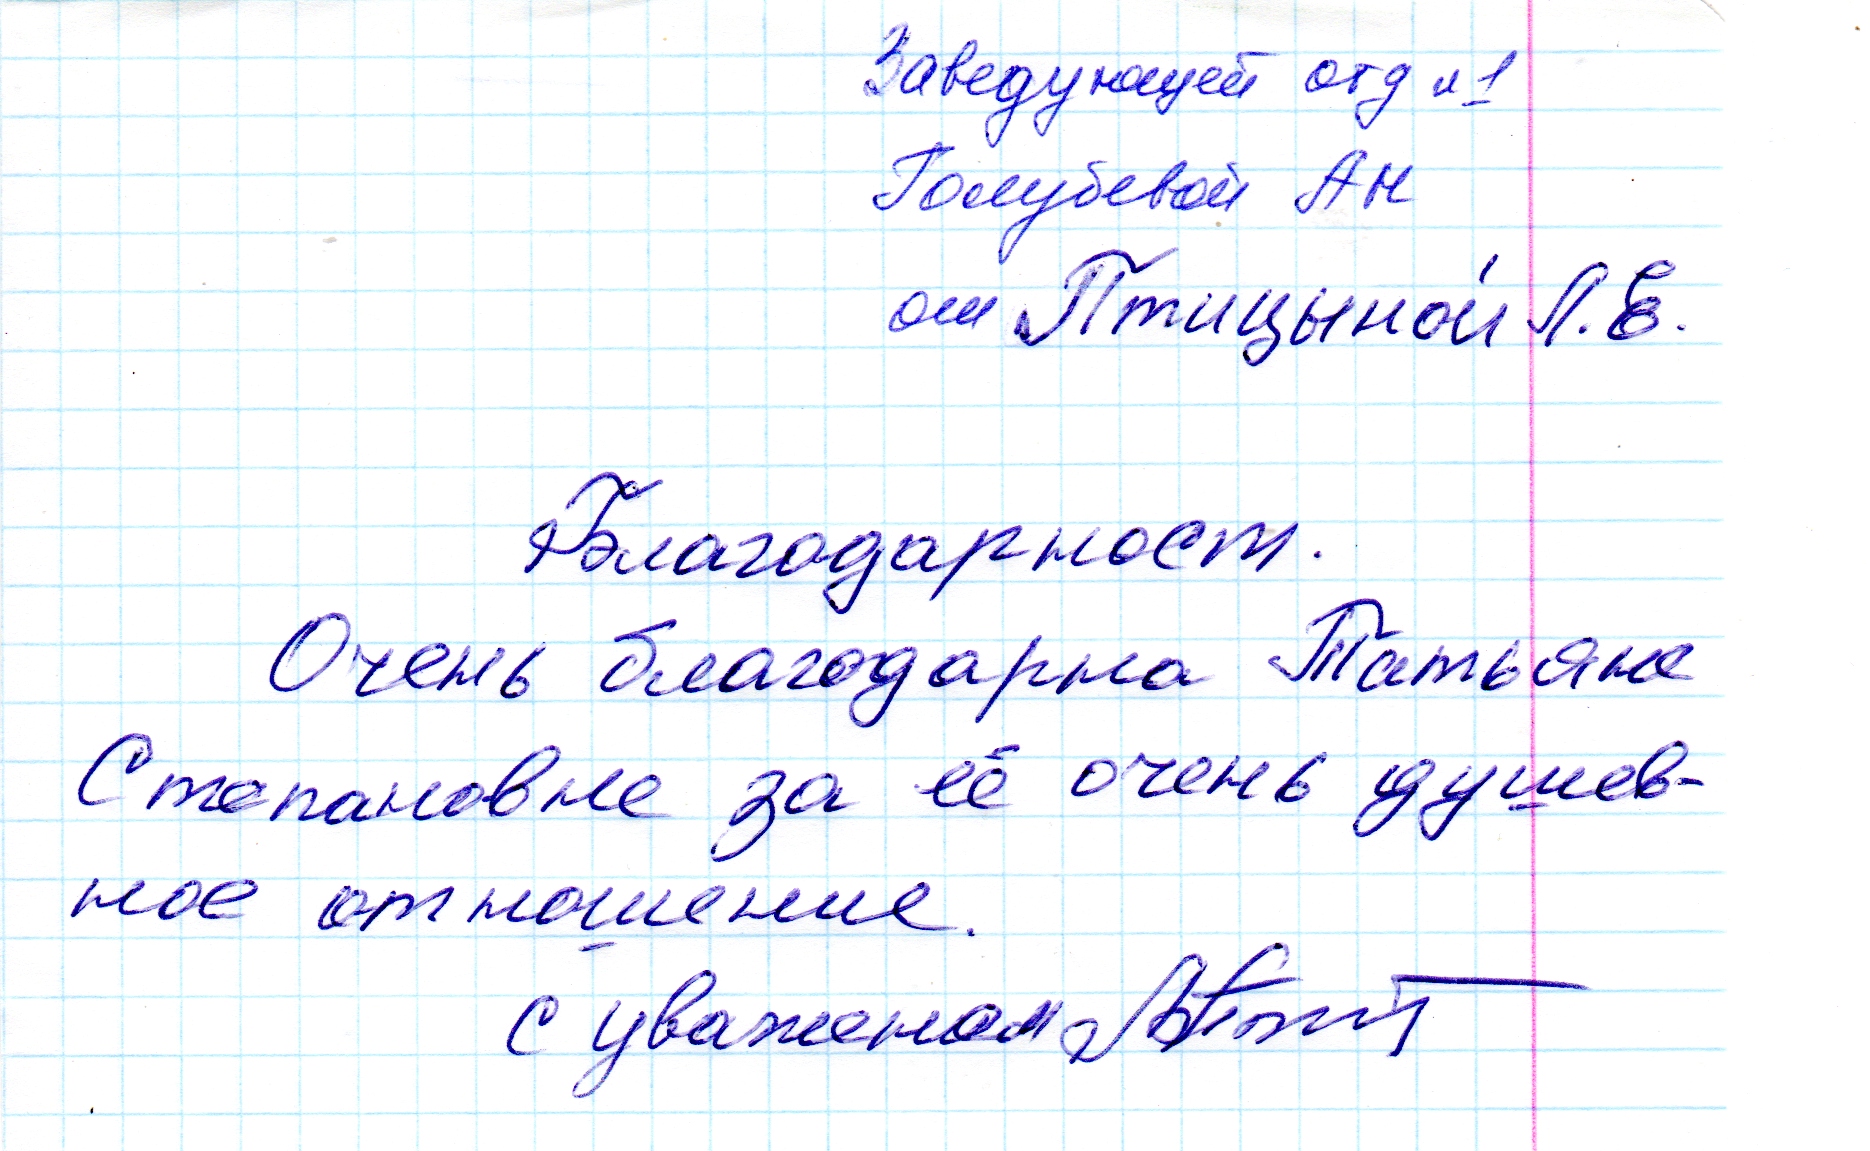 Заведующей отд №1
Голубевой АН
от Птицыной Л.Е.
Благодарност.
Очень благодарна Татьяне
Степановне за её очень душев-
ное отношение.
с уваженом